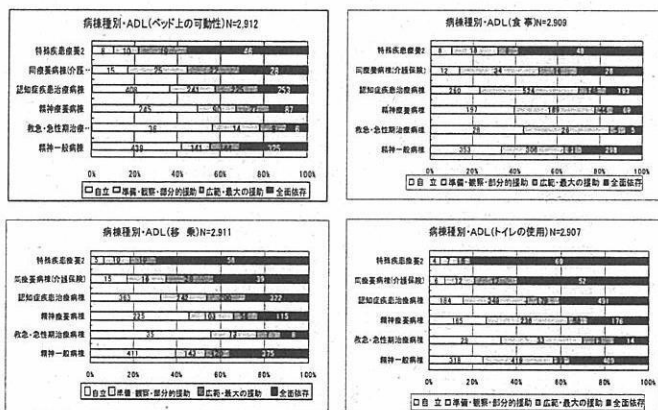 病棟種別・ADL(ベッド上の可動性)N=2,912
特殊疾患療養2 8 10 48
同療養病棟(介護… 15 25 28
認知症疾患治療病棟 408 241 225 253
精神療養病棟 245 90 77 87
救急・急性期治療… 38 14 6
精神一般病棟 439 141 325
0% 20% 40% 60% 80% 100%
□自立 □準備・観察・部分的援助 ■広範・最大の援助 ■全面依存
病棟種別・ADL(食事)N=2,909
特殊疾患療養2 8 18 48
同療養病棟(介護保険) 12 34 28
認知症疾患治療病棟 260 524 163
精神療養病棟 197 189 44 69
救急・急性期治療病棟 26 26 5
精神一般病棟 353 306 218
0% 20% 40% 60% 80% 100%
□自立 □準備・観察・部分的援助 □広範・最大の援助 ■全面依存
病棟種別・ADL(移乗)N=2,911
特殊疾患療養2 5 58
同療養病棟(介護保険) 15 16 39
認知症疾患治療病棟 363 242 322
精神療養病棟 225 103 115
救急・急性期治療病棟 35 13 8
精神一般病棟 411 142 375
0% 20% 40% 60% 80% 100%
□自立 □準備・観察・部分的援助 ■広範・最大の援助 ■全面依存
病棟種別・ADL(トイレの使用)N=2,907
特殊疾患療養2 4 7
同療養病棟(介護保険) 6 12 52
認知症疾患治療病棟 184 491
精神療養病棟 165 176
救急・急性期治療病棟 33 14
精神一般病棟 318 419
0% 20% 40% 60% 80% 100%
□自立 □準備・観察・部分的援助 ■広範・最大の援助 ■全面依存